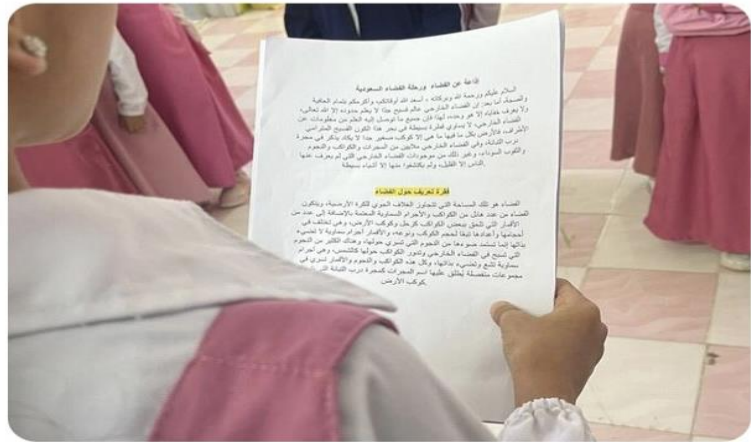 إذاعة عن الفضاء ورحلة الفضاء السعودية
السلام عليكم ورحمة الله وبركاته - أسعد الله أوقاتكم، وأكرمكم بتمام العافية
والصحة، أما بعد: إن الفضاء الخارجي عالم فسيح جدًا لا يعلم حدوده إلا الله تعالى،
ولا يعرف خفاياه إلا هو وحده، لهذا فإن جميع ما توصل إليه العلم من معلومات عن
الفضاء الخارجي، لا يساوي قطرة بسيطة في بحر هذا الكون الفسيح المترامي
الأطراف، فالأرض بكل ما فيها ما هي إلا كوكب صغير جدا لا يكاد يذكر في مجرة
درب التبانة، وفي الفضاء الخارجي ملايين من المجرات والكواكب والنجوم
والثقوب السوداء، وغير ذلك من موجودات الفضاء الخارجي التي لم يعرف عنها
الناس إلا القليل، ولم يكتشفوا منها إلا أشياء بسيطة.
فقرة تعريف حول الفضاء
الفضاء هو تلك المساحة التي تتجاوز الغلاف الجوي للكرة الأرضية، ويتكون
الفضاء من عدد هائل من الكواكب والأجرام السماوية المعتمة بالإضافة إلى عدد من
الأقمار التي تلحق ببعض الكواكب كزحل وكوكب الأرض، وهي تختلف في
أحجامها وأعدادها تبعًا لحجم الكوكب ونوعه، والأقمار أجرام سماوية لا تضيء
بذاتها إنما تستمد ضوءها من النجوم التي تسري حولها، وهناك الكثير من النجوم
التي تسبح في الفضاء الخارجي وتدور الكواكب حولها كالشمس، وهي أجرام
سماوية تشع وتضيء بذاتها، وكل هذه الكواكب والنجوم والأقمار تسري في
مجموعات منفصلة يُطلق عليها اسم المجرات كمجرة درب التبانة التي
كوكب الأرض.